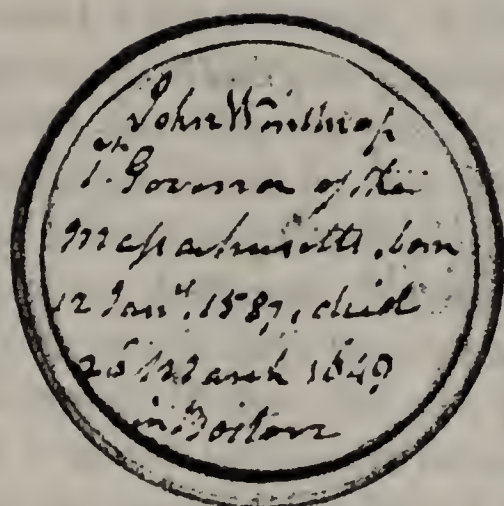 John Winthrop
1st. Governor of the
Massachusetts, born
12 Jany. 1587, died
26 March 1649
in Boston